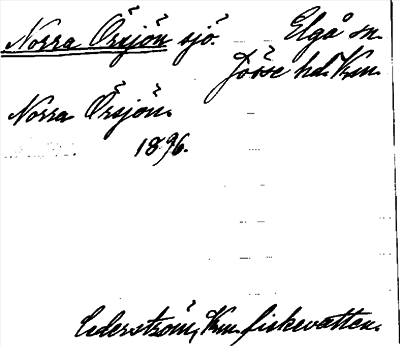 Norra Örsjön sjö. Elgå sn.
Jösse hd. Krm.
Norra Örsjön.
1896.
Cederström, Krm. fiskevatten.